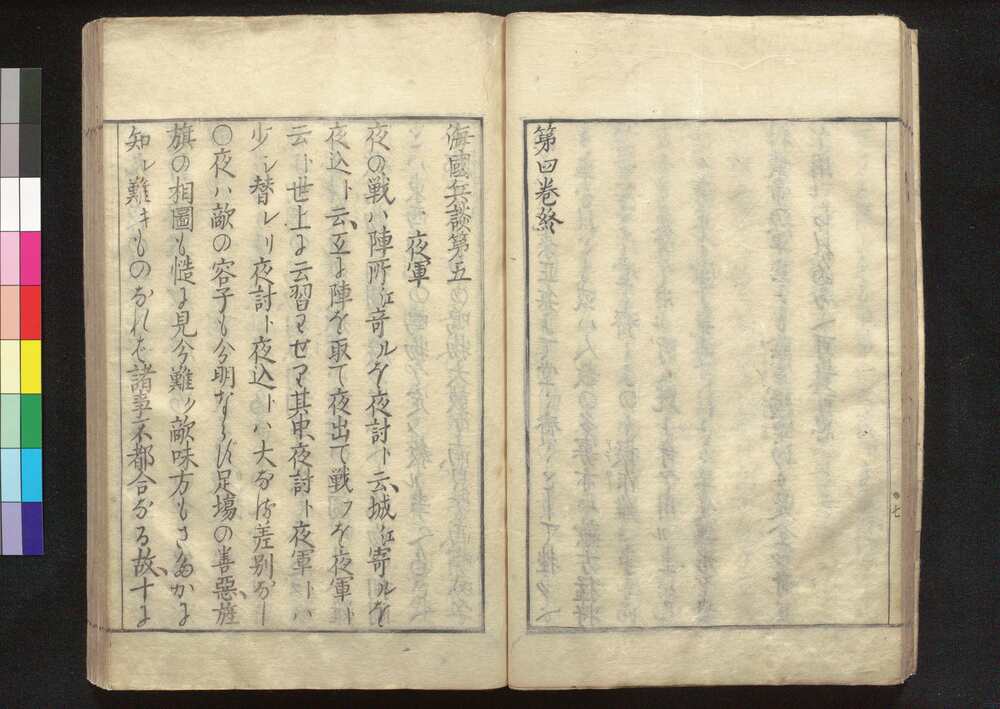 第四巻終
七
海國兵談第五
夜軍
夜の戦ハ陣所江寄ルを夜討ト云、城江寄ルを
夜込ト云、互に陣を取て夜出て戦フを夜軍ト
云ト世上に云習ワせ𪜈其中、夜討ト夜軍トハ
少シ替レリ夜討ト夜込トハ大なる差別なし
〇夜ハ敵の容子も分明ならず足場の善惡、旌
旗の相圖も慥に見分難ク敵味方もさだかに
知レ難キものなれば諸事不都合なる故、十に